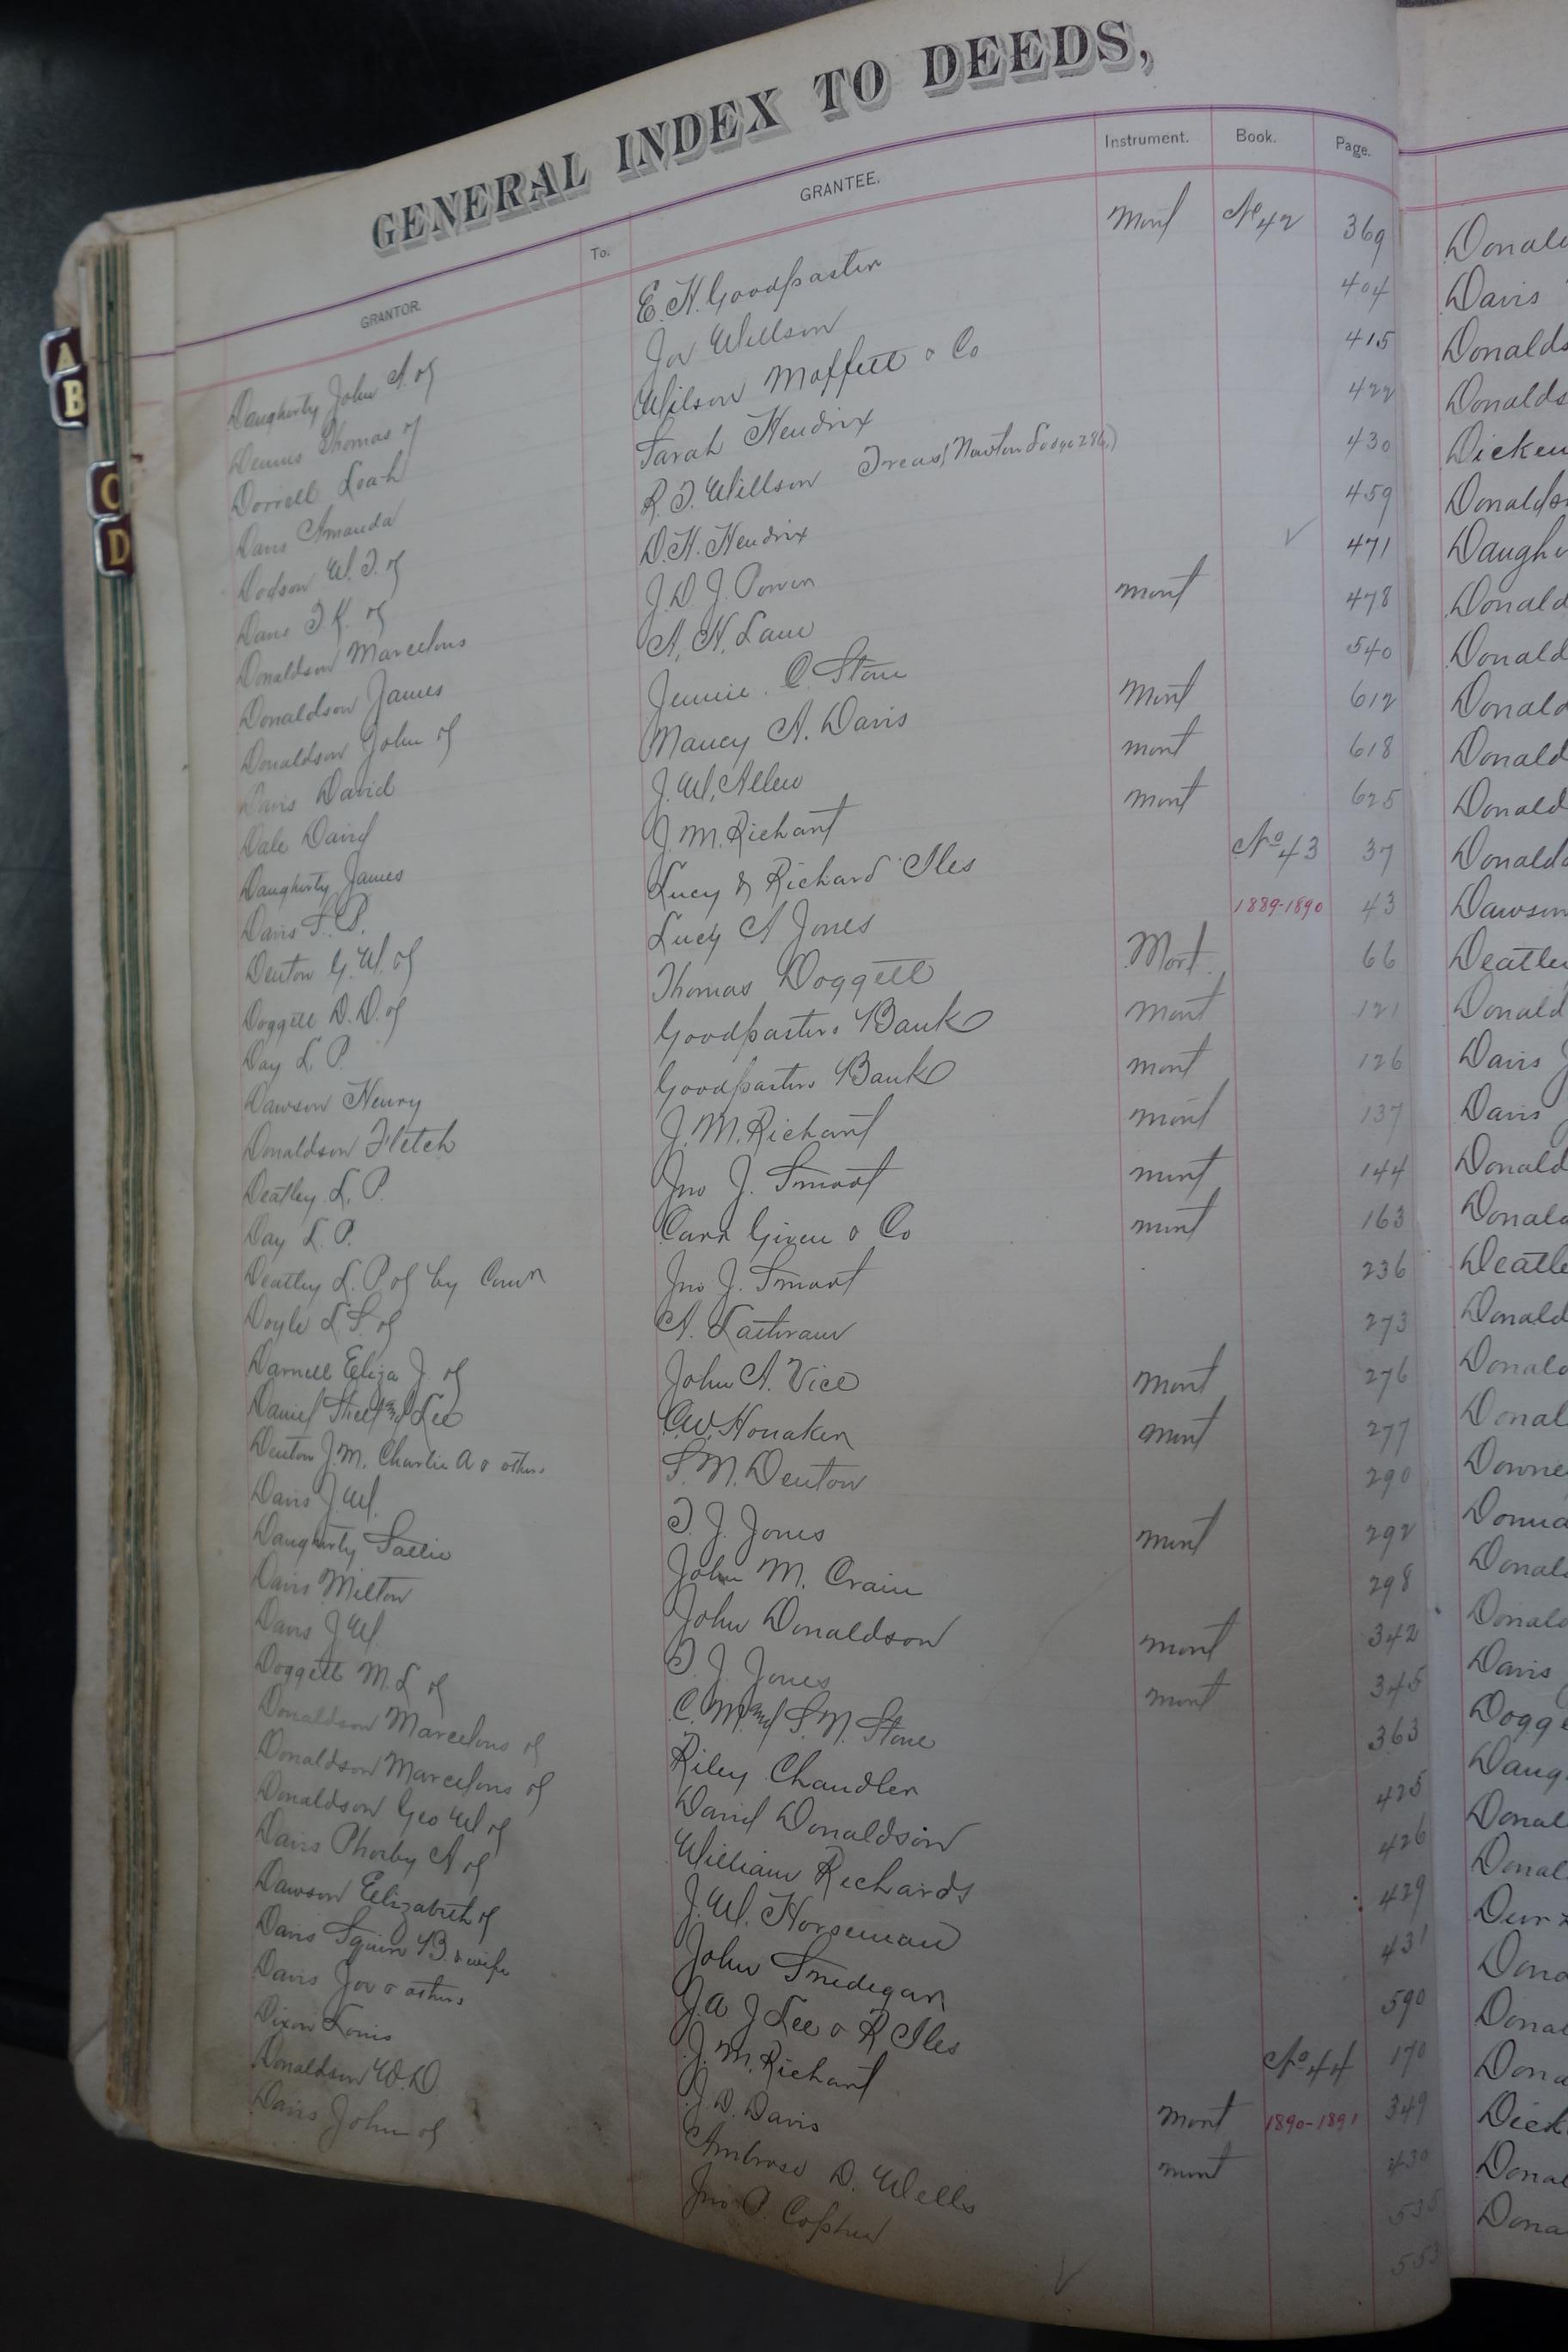 GENERAL INDEX TO DEEDS,
GRANTOR. To. GRANTEE. Instrument. Book. Page.
Daugherty John A. of E. H. Goodpaster Mort No 42 369
Dennis Thomas of Joe Willson 404
Dorrell Leah Wilson Moffett & Co 415
Davis Amanda Sarah Hendrix 422
Dodson W. T. of R. T. Willson Treas (Newton Lodge 286) 430
Davis T. K. of D. H. Hendrix 459
Donaldson Marcelous J. D. J. Power ✓ 471
Donaldson James A. N. Lane Mort 478
Donaldson John of Jennie C Stone 540
Davis David Nancy A. Davis Mort 612
Dale David J. W. Allen Mort 618
Daugherty James J. M. Richart Mort 625
Davis S. P. Lucy & Richard Iles No 43 37
Denton G. W. of Lucy A Jones 1889-1890 43
Doggett D. D. of Thomas Doggett Mort 66
Day L P. Goodpasters Bank Mort 121
Dawson Henry Goodpasters Bank Mort 126
Donaldson Fletch J. M. Richart Mort 137
Deatley L. P. Jno J. Smoot Mort 144
Day L. P. Carr Given & Co Mort 163
Deatley L. P of by Comr Jno J. Smoot 236
Doyle L S. of A. Lathram 273
Darnell Eliza J. of John A. Vice Mort 276
Daniel Shelt and Lee C. W. Honaker Mort 277
Denton J. M. Charlie A & others S. M. Denton 290
Davis J. W. T. J. Jones Mort 292
Daugherty Sallie John M. Crain 298
Davis Milton John Donaldson Mort 342
Davis J W T. J. Jones Mort 345
Doggett M. L of C. M. and S. M. Stone 363
Donaldson Marcelous of Riley Chandler 425
Donaldson Marcelous of David Donaldson 426
Donaldson Geo W of William Richards 429
Davis Phoeby A of J. W. Horseman 431
Dawson Elizabeth of John Snedegar 590
Davis Squire B. & wife J. A J Lee & R Iles No 44 170
Davis Joe & others J. M. Richart Mort 1890-1891 349
Dixon Louis J. D. Davis Mort 430
Donaldson W. D. Ambrose D. Wells 535
Davis John of Jno P Copher ✓ 553
A
B
C
D